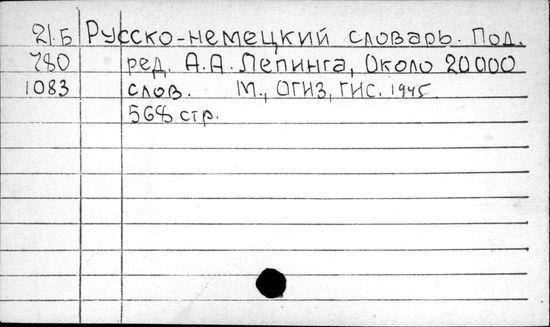 21.Б Русско-немецкий словарь. Под.
780 ред. А.А. Лепинга, Около 20 000
1083 слов. М., ОГИЗ, ГИС. 1945.
568 стр.